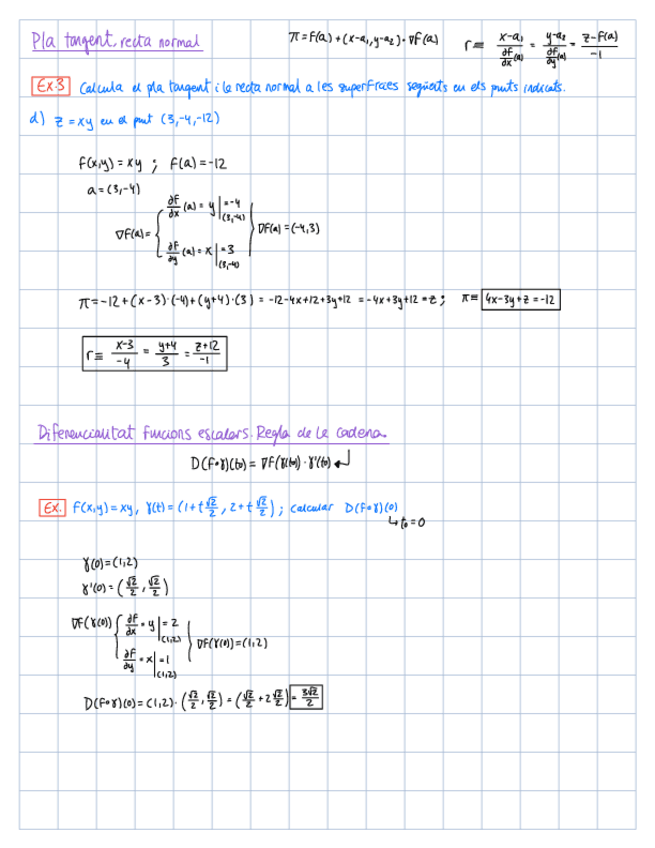 Pla tangent, recta normal
π = f(a) + (x-a₁, y-a₂) · ∇f(a)
r ≡ (x-a₁)/(∂f/∂x (a)) = (y-a₂)/(∂f/∂y (a)) = (z-f(a))/(-1)
Ex.3 Calcula el pla tangent i la recta normal a les superfícies següents en els punts indicats.
d) z = xy en el punt (3,-4,-12)
f(x,y) = xy ; f(a) = -12
a = (3,-4)
∇f(a) = { ∂f/∂x (a) = y |(3,-4) = -4
∂f/∂y (a) = x |(3,-4) = 3 } ∇f(a) = (-4,3)
π = -12 + (x-3)·(-4) + (y+4)·(3) = -12-4x+12+3y+12 = -4x+3y+12 = z ; π ≡ 4x-3y+z = -12
r ≡ (x-3)/(-4) = (y+4)/3 = (z+12)/(-1)
Diferencialitat funcions escalars. Regla de la cadena.
D(f∘γ)(t₀) = ∇f(γ(t₀)) · γ'(t₀)
Ex. f(x,y) = xy, γ(t) = (1+t √2/2, 2+t √2/2) ; calcular D(f∘γ)(0)
↳ t₀ = 0
γ(0) = (1,2)
γ'(0) = (√2/2, √2/2)
∇f(γ(0)) { ∂f/∂x = y |(1,2) = 2
∂f/∂y = x |(1,2) = 1 } ∇f(γ(0)) = (1,2)
D(f∘γ)(0) = (1,2) · (√2/2, √2/2) = (√2/2 + 2 √2/2) = 3√2/2